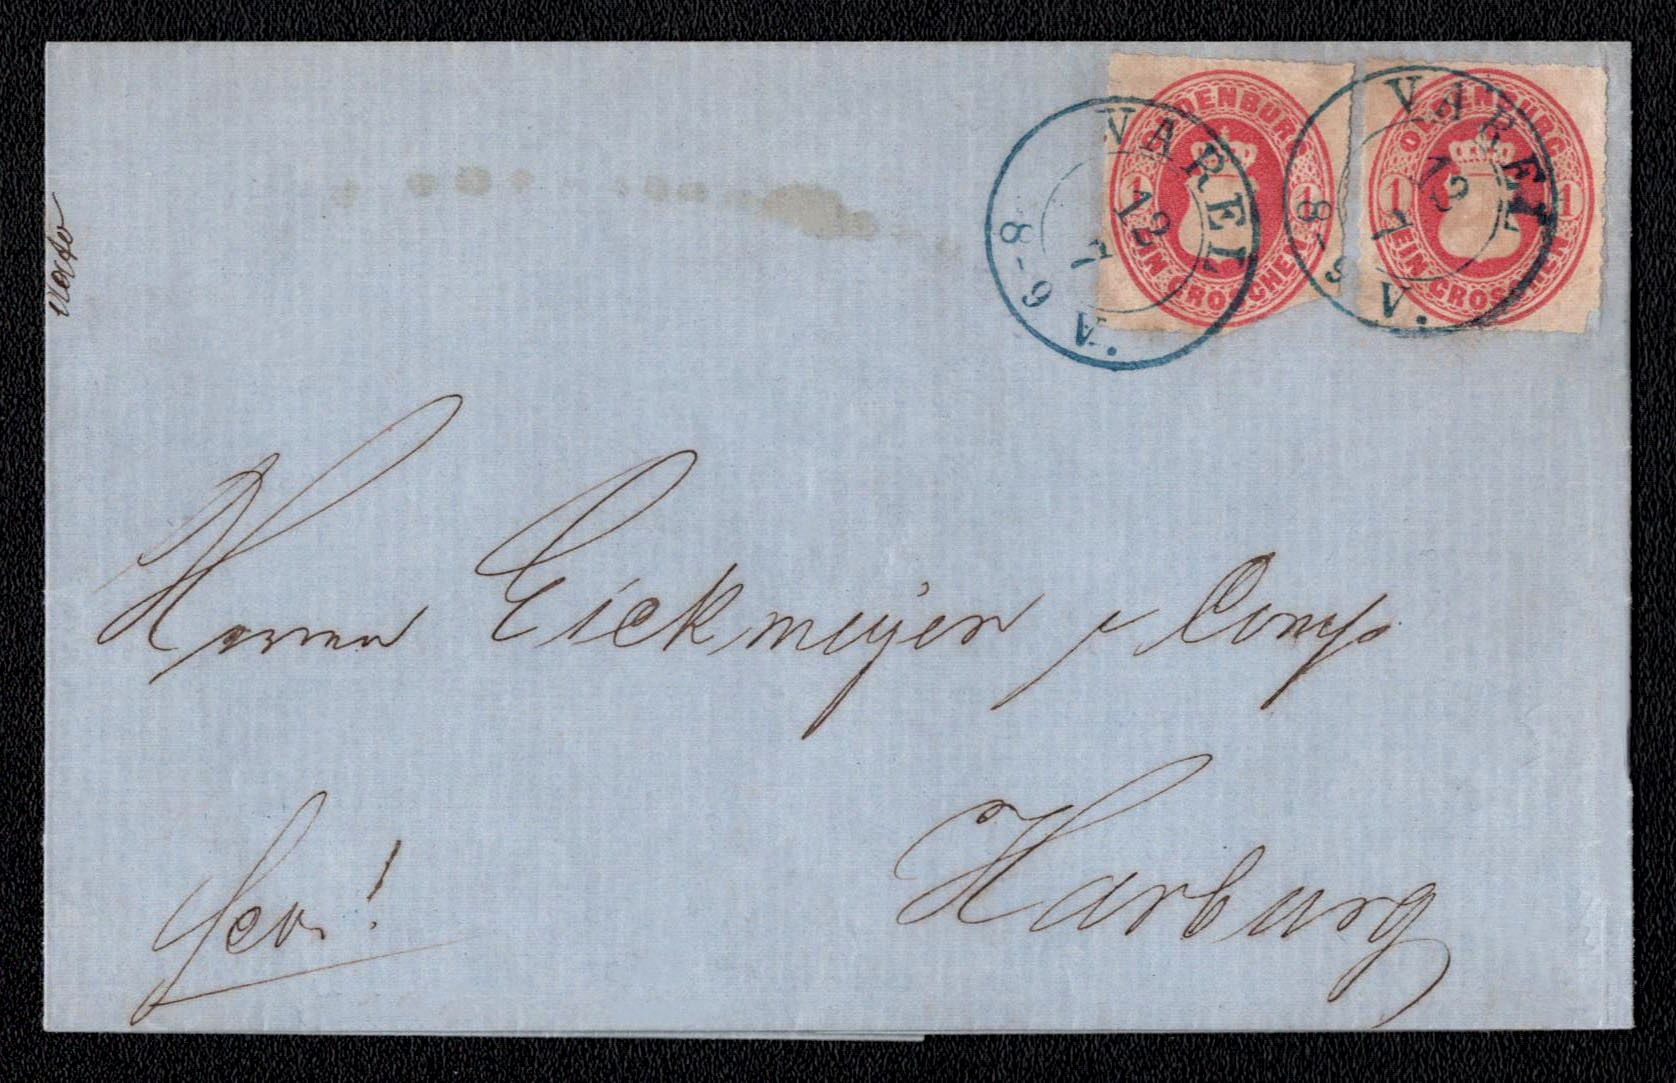 OLDENBURG
1 1
EIN GROSCHEN
OLDENBURG
1 1
EIN GROSCHEN
VAREL
12
7
8-9 V.
VAREL
12
7
8-9 V.
Herren Eickmeyer & Comp
Harburg